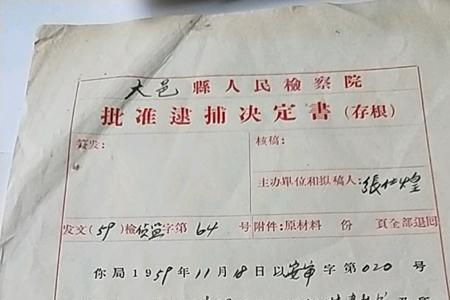 大邑縣人民檢察院
批准逮捕决定書(存根)
簽发: 核稿:
主办單位和拟稿人: 張仕煌
发文(59)檢偵監字第64号 附件:原材料 份 頁全部退回
你局1959年11月18日以安审字第020号